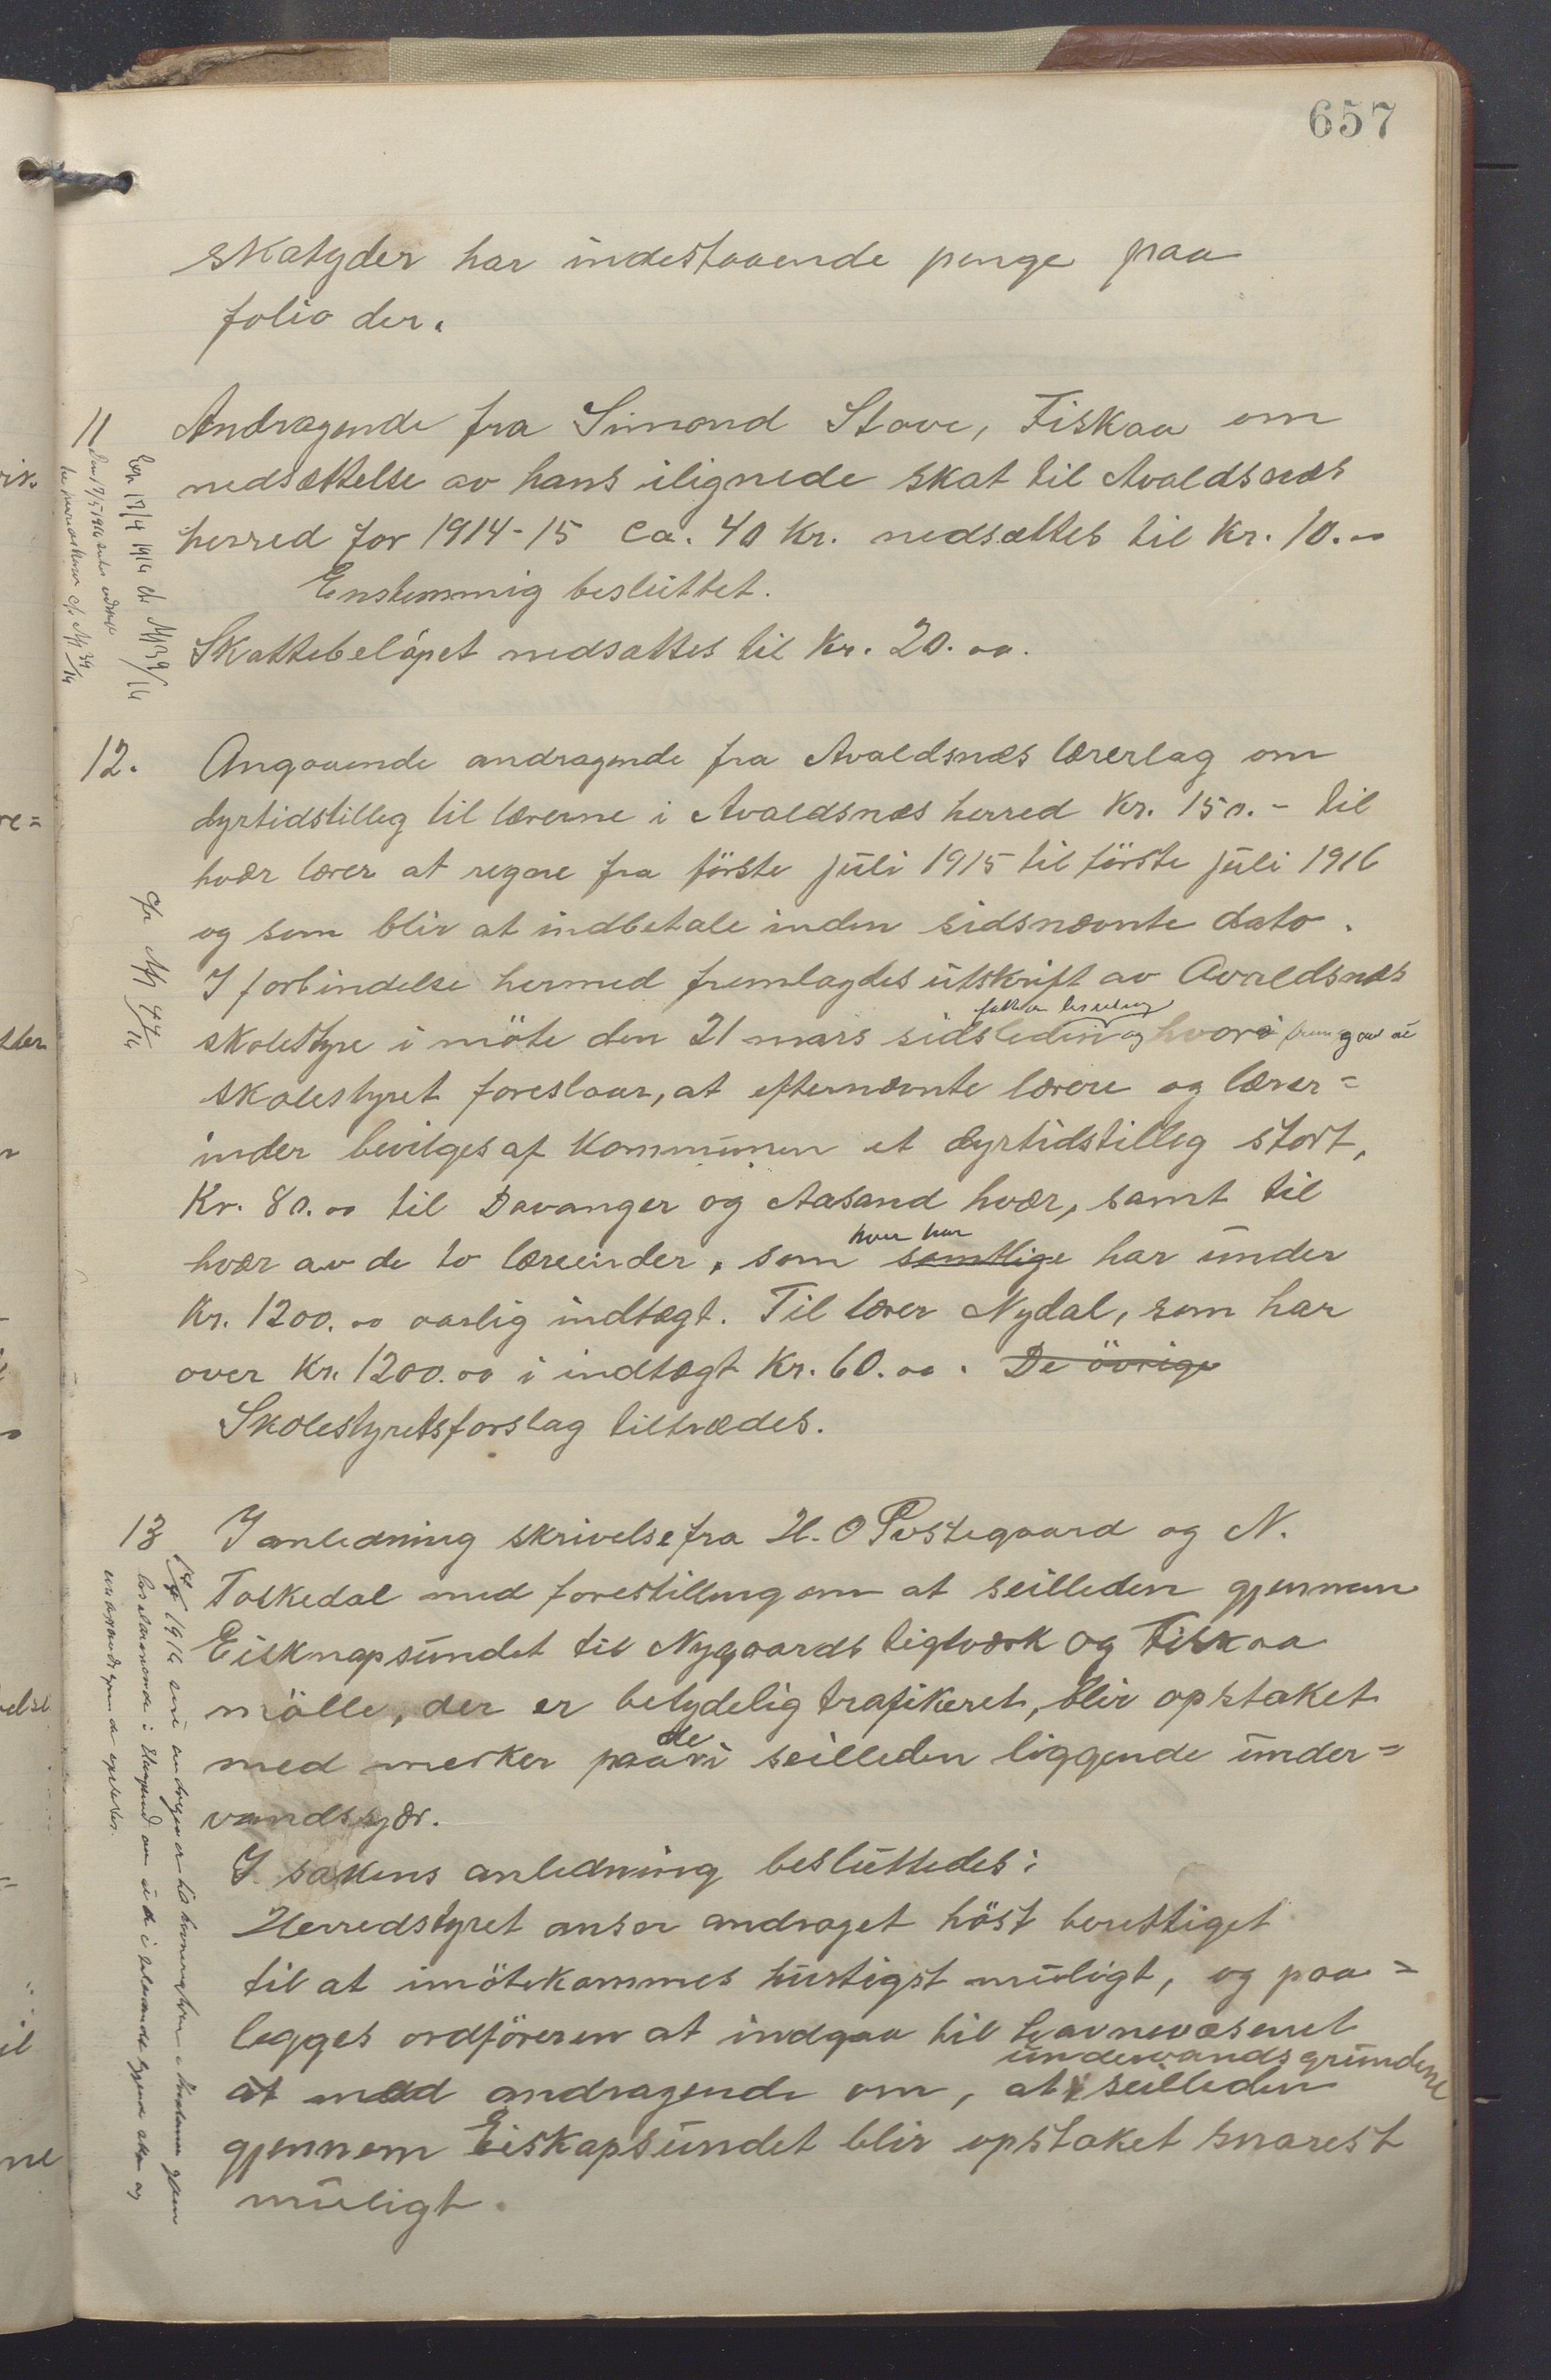 657
skatyder har indestaaende penge paa
folio der.
11
Andragende fra Simond Stave, Fiskaa om
nedsættelse av hans ilignede skat til Avaldsnæs
herred for 1914-15 ca. 40 kr. nedsættes til kr. 10.00
Enstemmig besluttet.
Skattebeløpet nedsattes til kr. 20.00.
12.
Angaaende andragende fra Avaldsnæs lærerlag om
dyrtidstilleg til lærerne i Avaldsnæs herred kr. 150.- til
hvær lærer at regne fra første juli 1915 til første juli 1916
og som blir at indbetale inden sidsnævnte dato.
I forbindelse hermed fremlagdes utskrift av Avaldsnæs
skolestyre i møte den 21 mars sidsleden og hvori
skolestyret foreslaar, at efternævnte lærere og lærer=
inder bevilges af kommunen et dyrtidstilleg stort,
Kr. 80.00 til Davanger og Aasand hvær, samt til
hvær av de to lærerinder, som samtlige har under
Kr. 1200.00 aarlig indtægt. Til lærer Nydal, som har
over kr. 1200.00 i indtægt kr. 60.00. De øvrige
Skolestyrets forslag tiltrædes.
13
I anledning skrivelse fra H. O Postegaard og N.
Toskedal med forestilling om at seilleden gjennem
Eisknapsundet til Nygaards tiglværk og Fiskaa
mølle, der er betydelig trafikeret, blir opstaket
med merker paa de i seilleden liggende under=
vandsskjær.
I sakens anledning besluttedes:
Herredstyret anser andraget høist berettiget
til at imøtekommes hurtigst muligt, og paa=
legges ordføreren at indgaa til havnevæsenet
undervandsgrundene
at med andragende om, at i seilleden
gjennem Eiskapsundet blir opstaket snarest
muligt.